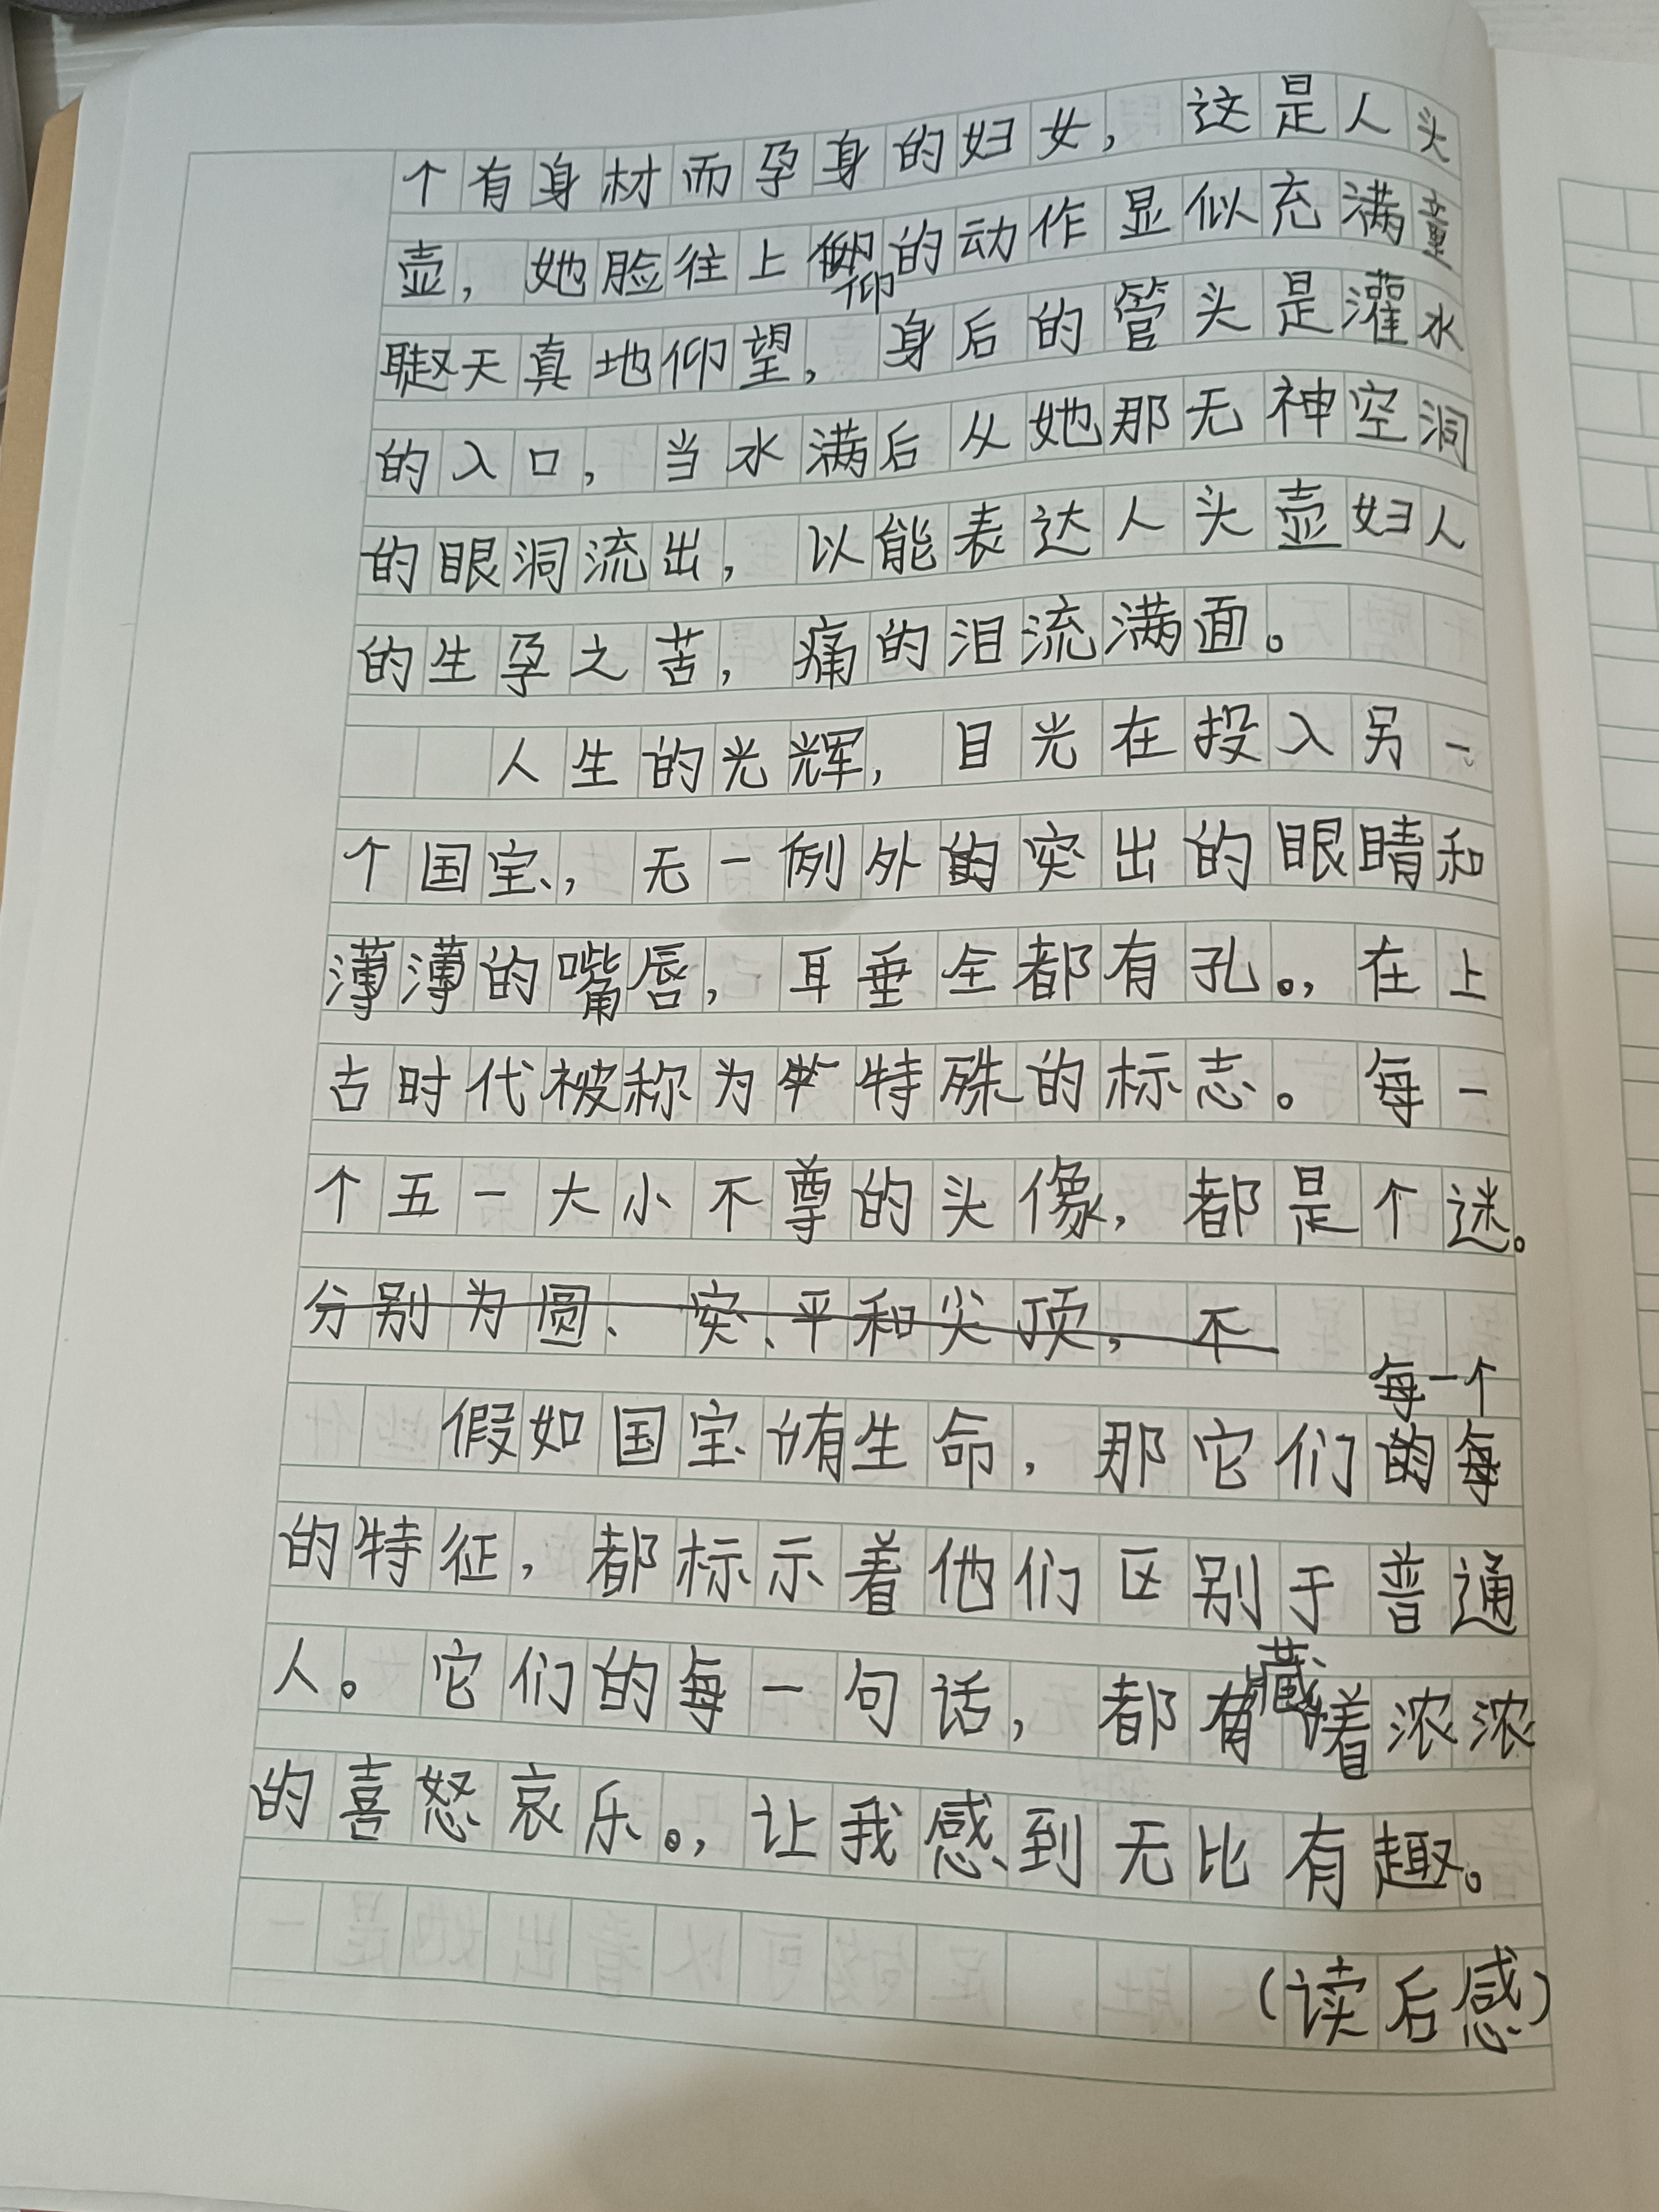 个有身材而孕身的妇女，这是人头
壶，她脸往上仰的动作显似充满童
天真地仰望，身后的管头是灌水
的入口，当水满后从她那无神空洞
的眼洞流出，以能表达人头壶妇人
的生孕之苦，痛的泪流满面。
人生的光辉，目光在投入另一
个国宝，无一例外的突出的眼睛和
薄薄的嘴唇，耳垂全都有孔。，在上
古时代被称为特殊的标志。每一
个五一大小不尊的头像，都是个谜。
分别为圆、突、平和尖顶，不
假如国宝有生命，那它们的每一个
的特征，都标示着他们区别于普通
人。它们的每一句话，都藏着浓浓
的喜怒哀乐。，让我感到无比有趣。
（读后感）